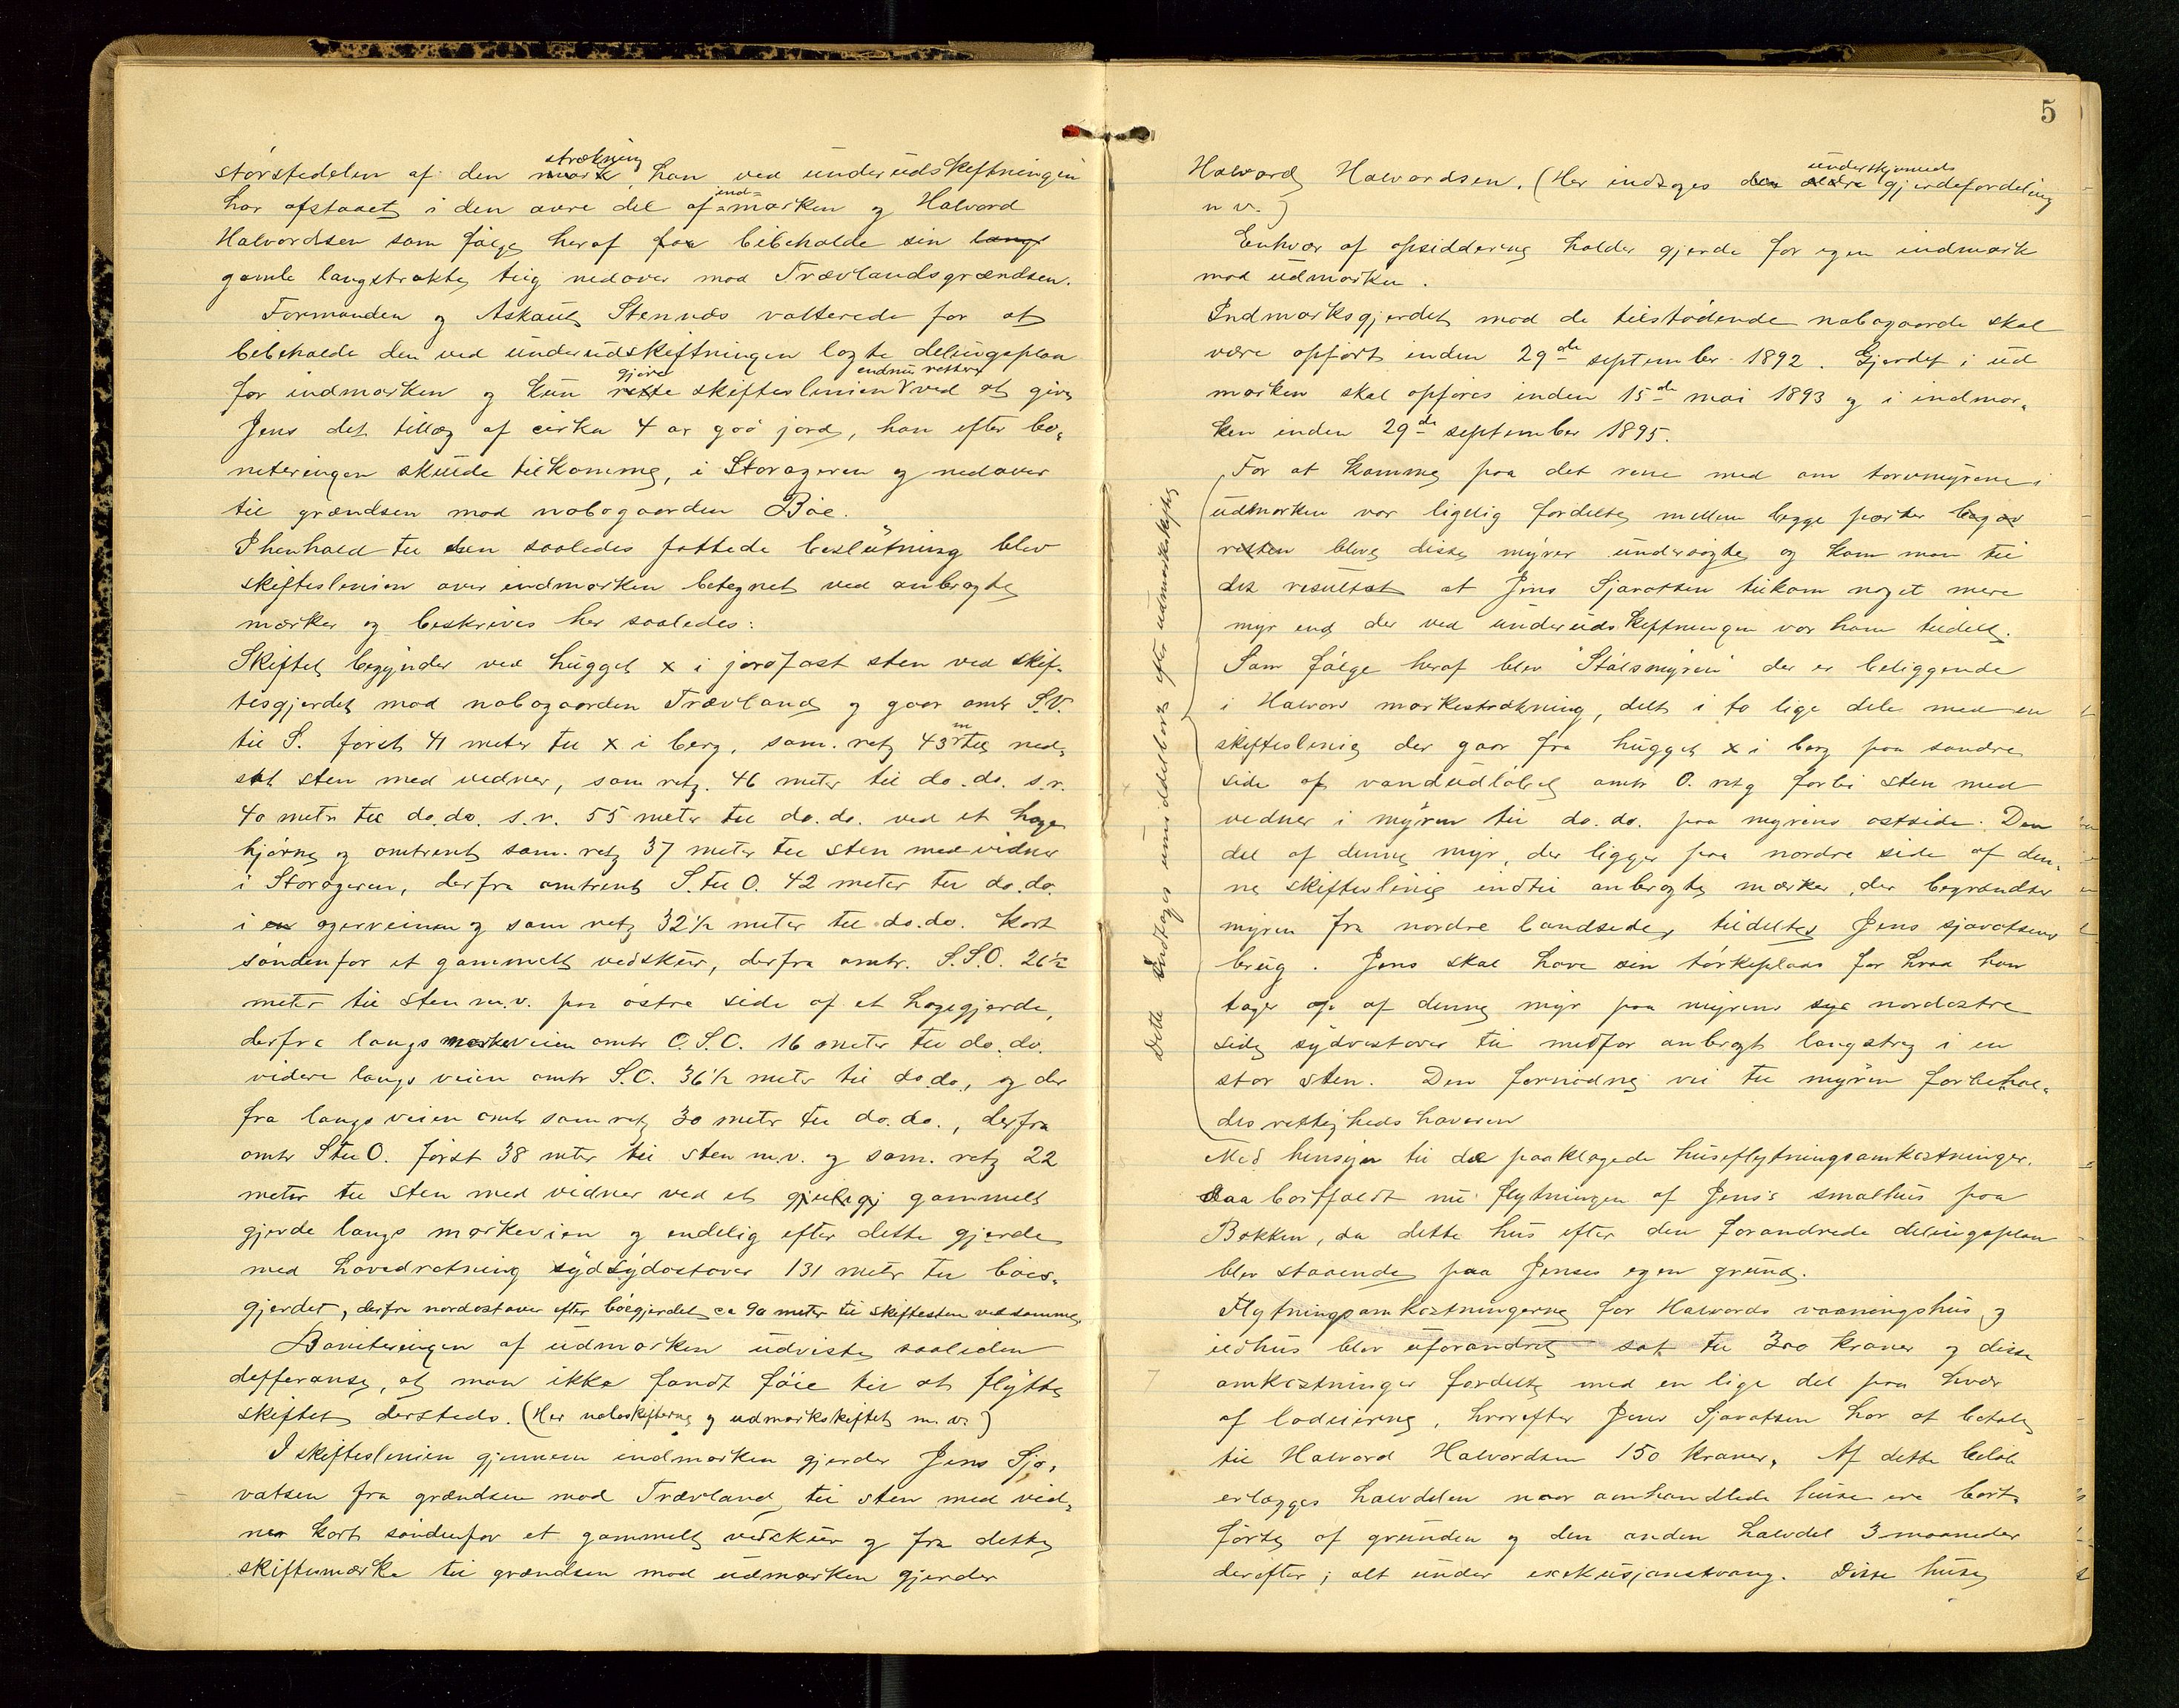 størstedelen af den strækning, han ved underudskiftningen
har afstaaet i den øvre del af ind-marken og Halvord
Halvordsen som følge heraf faa bibeholde sin langs
gamle langstrakte teig nedover mod Trævlandsgrændsen.
Formanden og Askaut Stennæs votterede for at
bibeholde den ved underudskiftningen lagte delingsplan
for indmarken og kun gjøre skifteslinien endnu rettere ved at give
Jens det tillæg af cirka 4 ar god jord, han efter bo-
neteringen skulde tilkomme, i Storageren og nedover
til grændsen mod nabogaarden Bøe.
I henhold til den saaledes fattede beslutning blev
skifteslinien over indmarken betegnet ved anbragte
mærker og beskrives her saaledes:
Skiftet begynder ved hugget x i jordfast sten ved skif-
tesgjerdet mod nabogaarden Trævland og gaar omtr S.V.
til S. først 41 meter til x i berg, sam. retg 43 m til ned-
sat sten med vidner, sam retg. 46 meter til do. do. s.r.
40 metr til do. do. s.r. 55 meter til do. do. ved et hage
hjørne og omtrent sam. retg 37 meter til sten med vidner
i Storageren, derfra omtrent S. til O. 42 meter til do. do.
i en agerreinen og sam retg 32 1/2 meter til do. do. kort
søndenfor et gammelt vedskur, derfra omtr. S.S.O. 26 1/2
meter til sten m.v. paa østre side af et hagegjerde,
derfra langs markeveien omtr O.S.O. 16 meter til do. do.
videre langs veien omtr S.O. 36 1/2 meter til do. do., og der
fra langs veien omtr sam retg 30 metr til do. do., derfra
omtr S til O. først 38 meter til sten m.v. og sam. retg 22
meter til sten med vidner ved et gammelt
gjerde langs markeveien og endelig efter dette gjerde
med hovedretning sydsydostover 131 metr til bøes-
gjerdet, derfra nordostover efter bøegjerdet ca 90 meter til skiftesten ved samme.
Boniteringen af udmarken udviste saaliden
defferanse, at man ikke fandt føie til at flytte
skiftet dersteds. (Her naboskifterne og udmarkskiftet m. v.)
I skifteslinien gjennem indmarken gjerder Jens Sja-
vatsen fra grændsen mod Trævland til sten med vid-
ner kort søndenfor et gammelt vedskur og fra dette
skiftesmærke til grændsen mod udmarken gjerder
5
Halvord Halvordsen. (Her indtages den underskjønneds gjerdefordeling
m v.)
Enhver af opsidderne holder gjerde for egen indmark
mod udmarken.
Indmarksgjerdet mod de tilstødende nabogaarde skal
være opført inden 29de september 1892. Gjerdet i ud
marken skal opføres inden 15de mai 1893 og i indmar-
ken inden 29de september 1895.
For at komme paa det rene med om torvmyrene i
udmarken var ligelig fordelte mellem begge parter
bleve disse myrer undersøgte og kom man til
det resultat at Jens Sjavatsen tilkom noget mere
myr end der ved underudskiftningen var ham tildelt.
Som følge heraf blev "Stølsmyren" der er beliggende
i Halvors markestrækning, delt i to lige dele med en
skifteslinie der gaar fra hugget x i berg paa søndre
side af vandudløbet omtr O. retg forbi sten med
vidner i myren til do. do. paa myrens østside. Den
del af denne myr, der ligger paa nordre side af den-
ne skifteslinie indtil anbragte mærker, der begrændser
myren fra nordre landside tildeltes Jens Sjavatsens
brug. Jens skal have sin tørkeplads for hvad han
tager op af denne myr paa myrens nordøstre
side sydvestover til midtfor anbragt langstreg i en
stor sten. Den fornødne vei til myren forbehol-
des rettighedshaveren
Dette indtages umiddelbart efter udmarkskiftet
Med hensyn til de paaklagede husflytningsomkostninger.
saa bortfaldt nu flytningen af Jens's smalhus paa
Bakken, da dette hus efter den forandrede delingsplan
blev staaende paa Jenses egen grund.
Flytningsomkostningerne for Halvords vaaningshus og
ildhus blev uforandret sat til 300 kroner og disse
omkostninger fordelte med en lige del paa hver
af lodeierne, hvorefter Jens Sjavatsen har at betale
til Halvord Halvordsen 150 kroner. Af dette beløb
erlægges halvdelen naar omhandlede huse ere bort-
førte af grunden og den anden halvdel 3 maaneder
derefter; alt under exekusjonstvang. Disse huse